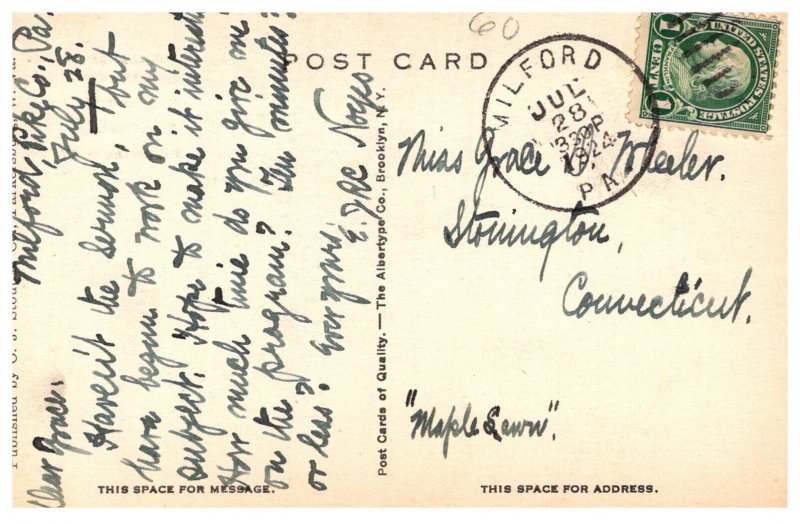 60
POST CARD
MILFORD
JUL
28
330P
1924
PA.
UNITED STATES POSTAGE
1
Milford, Pike Co., Pa.
July 28.
Dear Grace,
Haven't the sermon, but
have begun to work on my
subject. Hope to make it interesting
How much time do you give me
on the program? Ten minutes?
or less? Ever yours,
E. Noyes
Published by C. J.
Post Cards of Quality. — The Albertype Co., Brooklyn, N.Y.
Miss Grace D. Wheeler.
Stonington,
Connecticut.
"Maple Lawn".
THIS SPACE FOR MESSAGE.
THIS SPACE FOR ADDRESS.